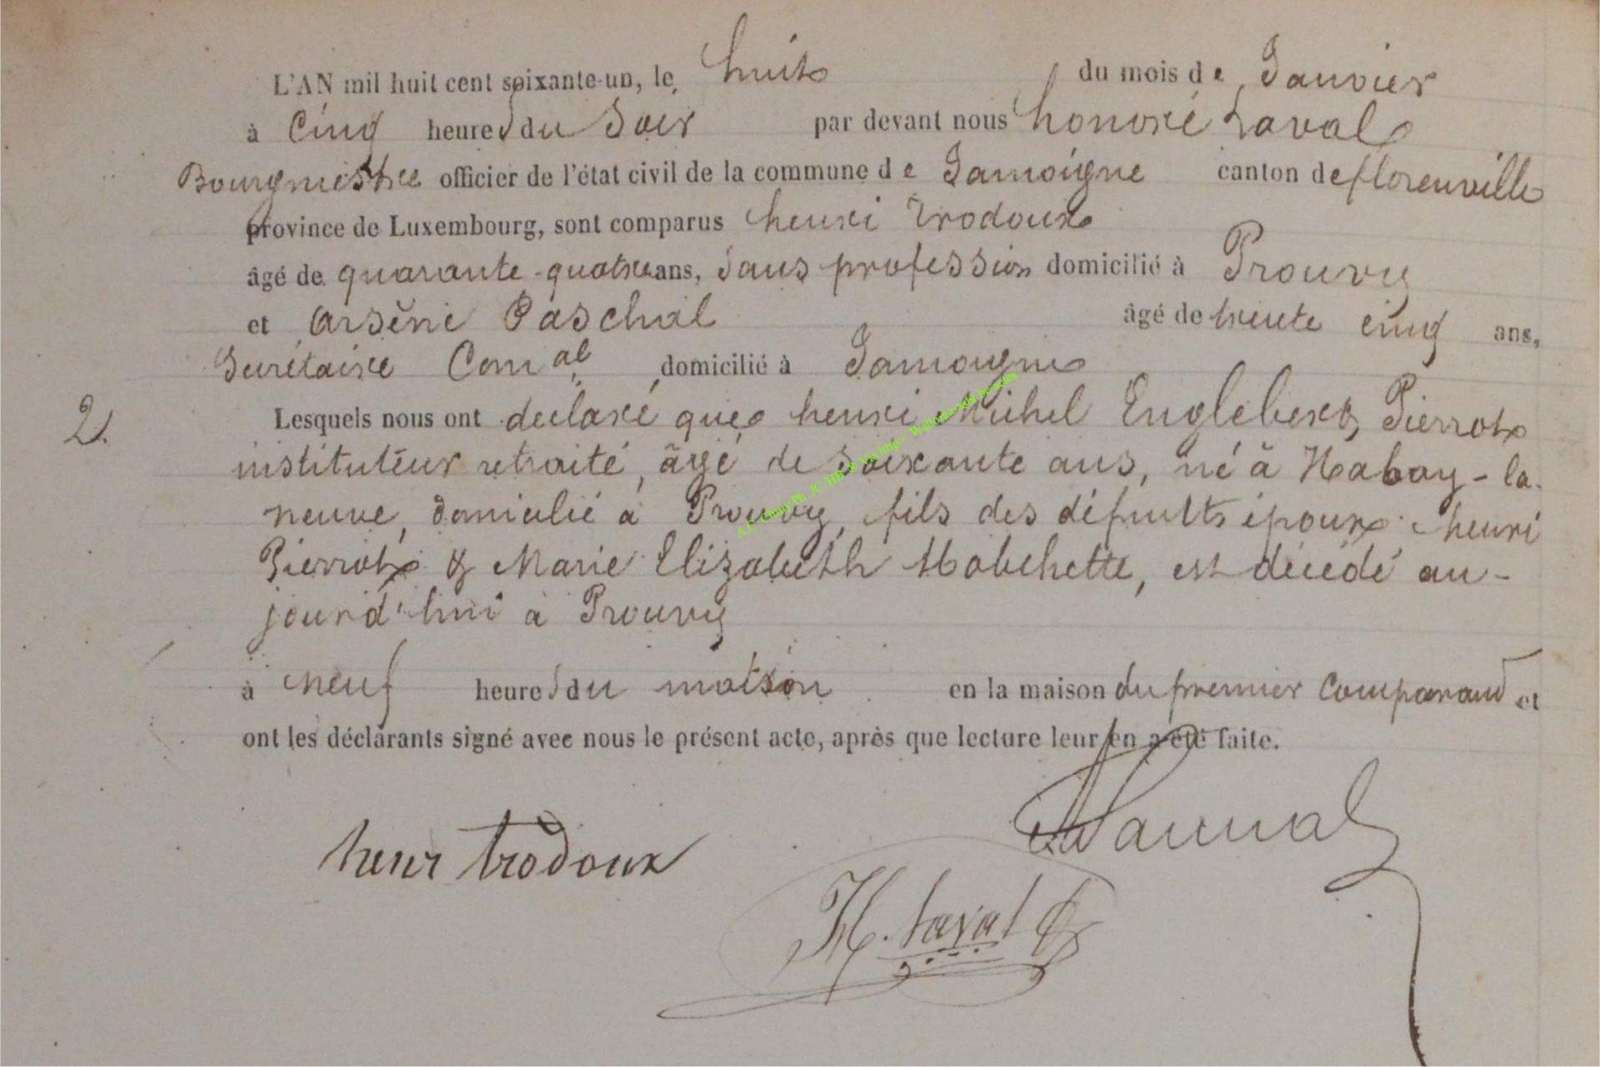 L'AN mil huit cent soixante-un, le huit du mois de Janvier
à Cinq heures du Soir par devant nous honoré Laval
Bourgmestre officier de l'état civil de la commune de Jamoigne canton de florenville
province de Luxembourg, sont comparus henri Trodoux
âgé de quarante-quatre ans, Sans profession domicilié à Prouvy
et Arsène Paschal âgé de trente cinq ans,
Secrétaire Comal domicilié à Jamoigne
2. Lesquels nous ont déclaré que henri Michel Englebert, Pierrot
instituteur retraité, âgé de soixante ans, né à Habay-la-
neuve, domicilié à Prouvy, fils des défunts époux henri
Pierrot & Marie Elizabeth Hobchette, est décédé au-
jourd'hui à Prouvy
à neuf heures du matin en la maison du premier Comparant et
ont les déclarants signé avec nous le présent acte, après que lecture leur en a été faite.
henri trodoux
H. Laval